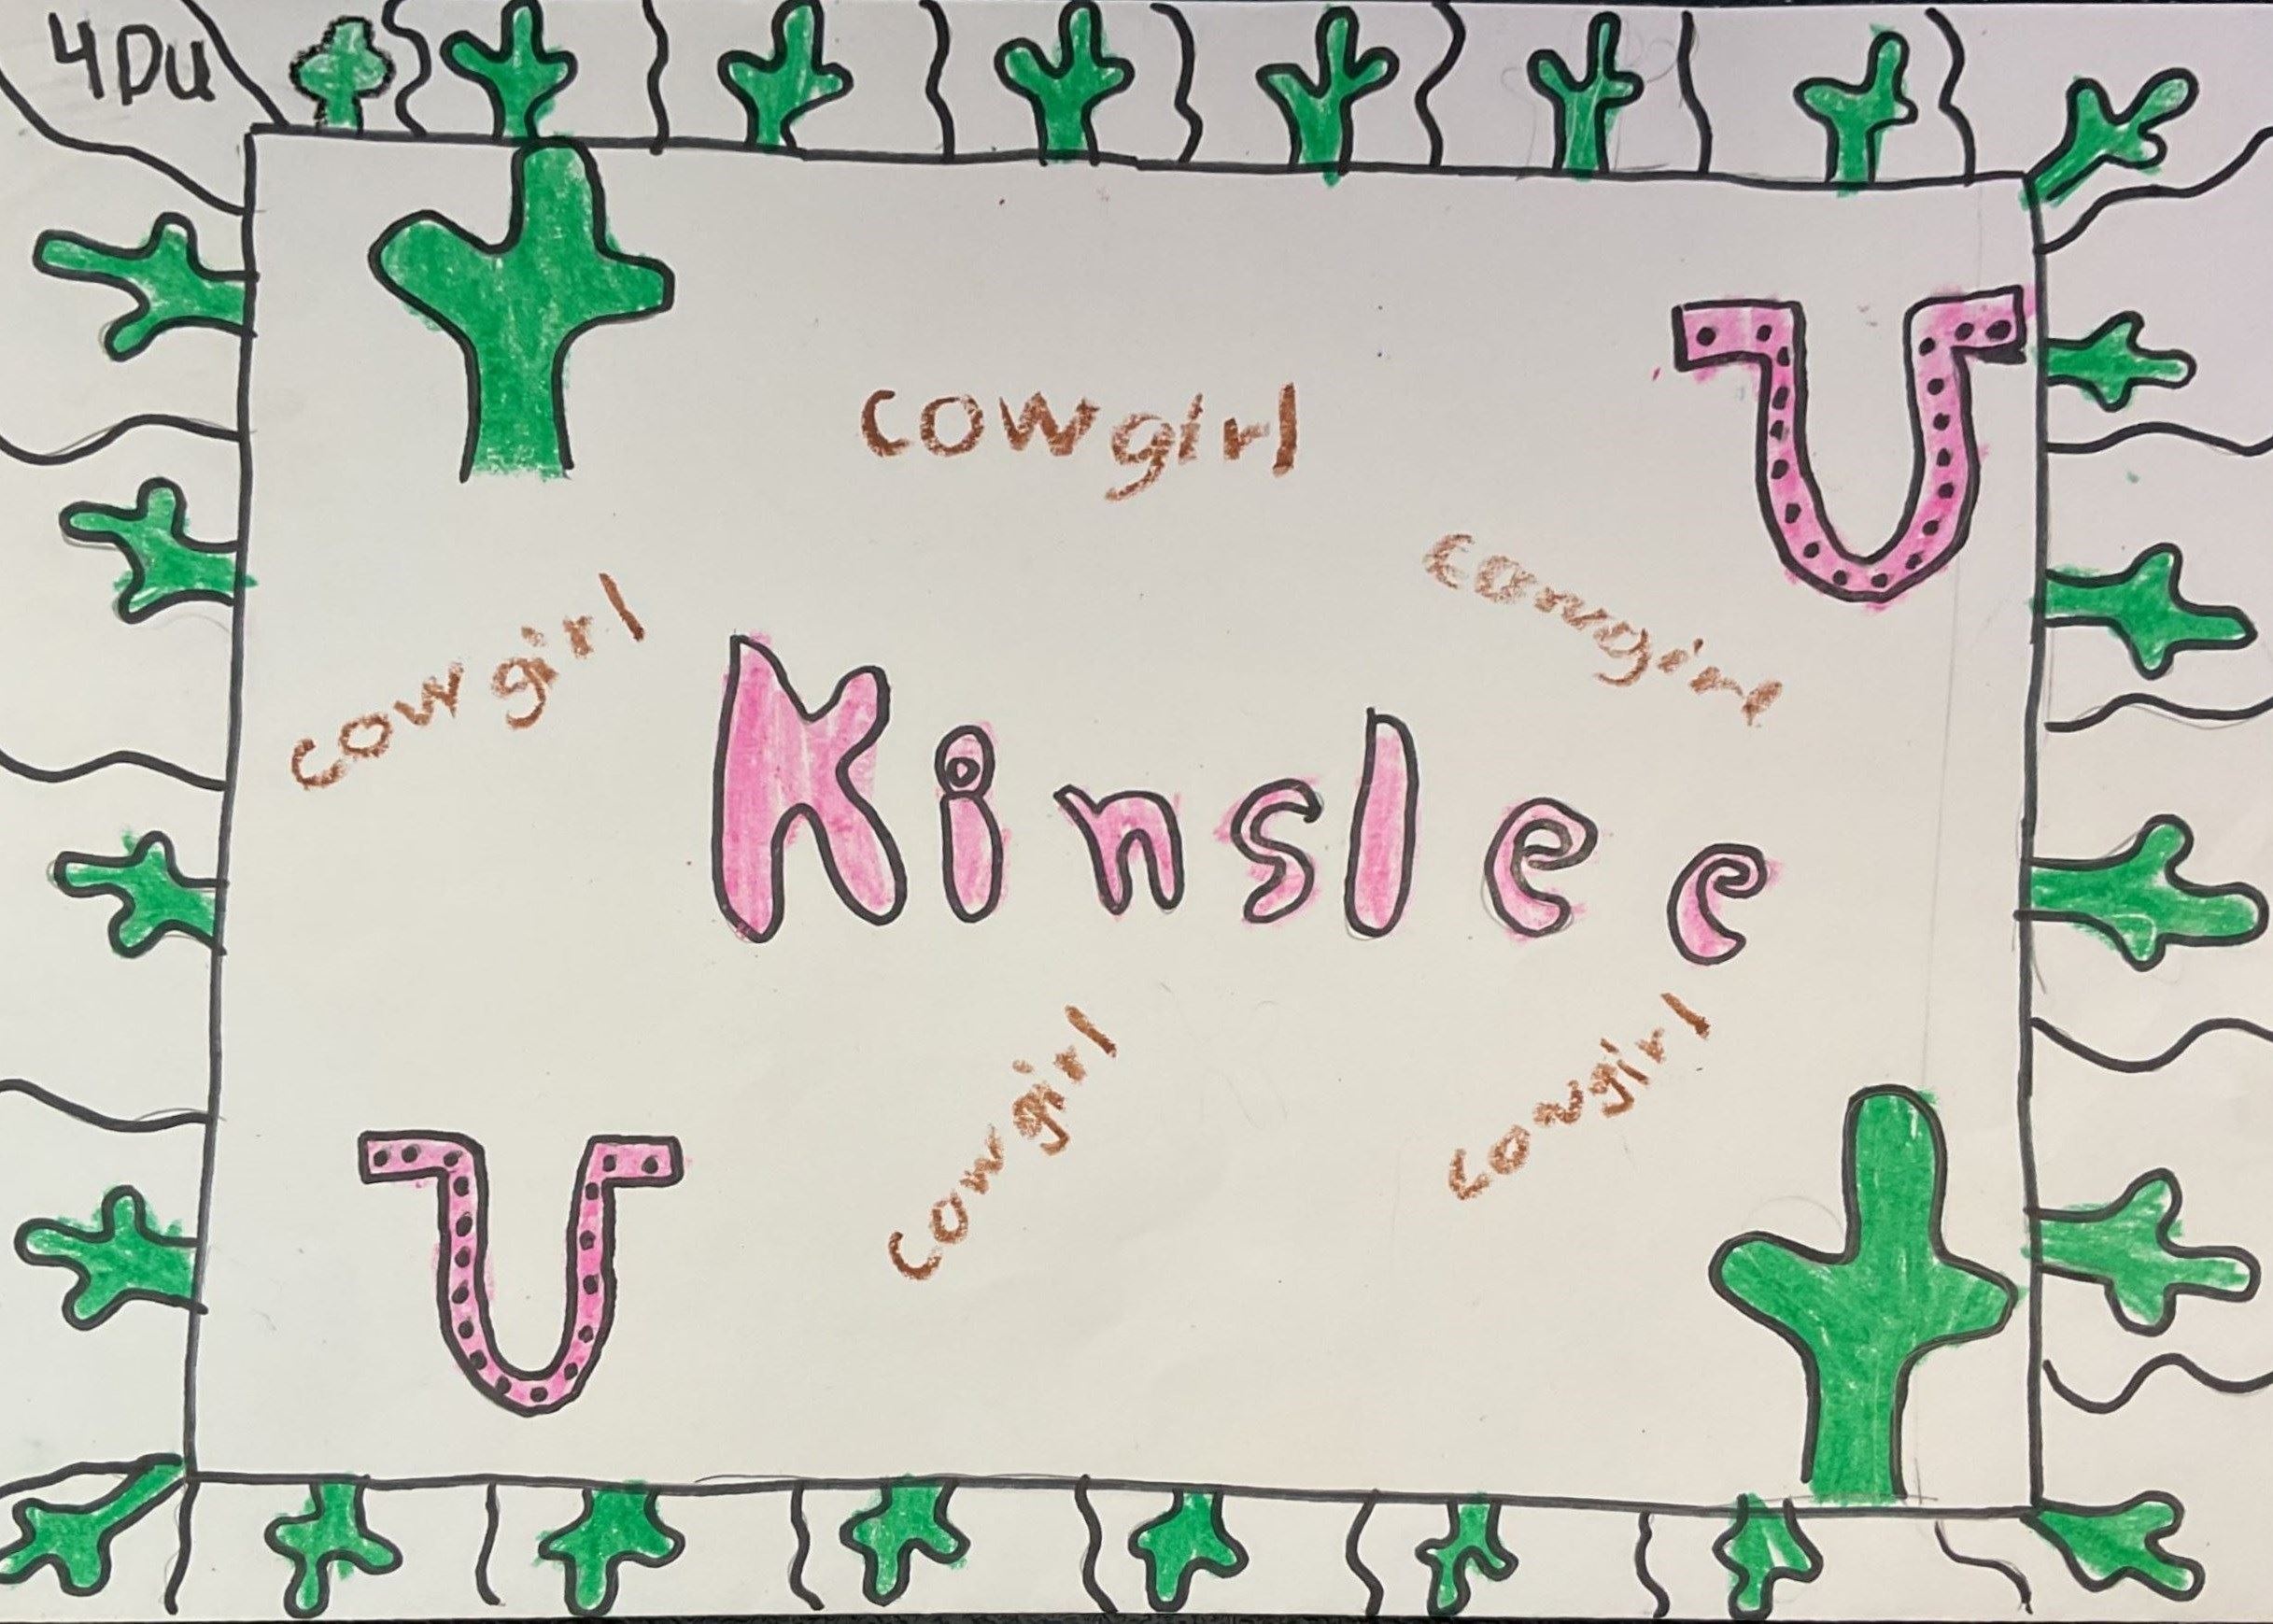 4Du
cowgirl
cowgirl
cowgirl
Kinslee
cowgirl
cowgirl